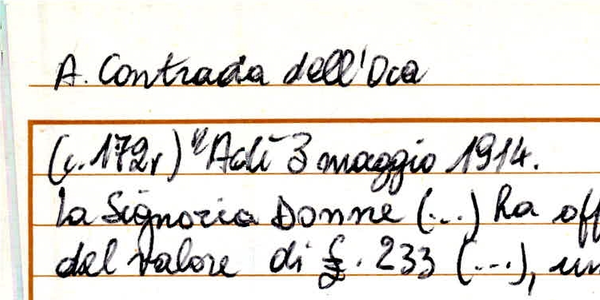 A. Contrada dell'Oca
(c.172r) "Adì 3 maggio 1914.
La Signoria Donne (...) ha off
del valore di £. 233 (...), un